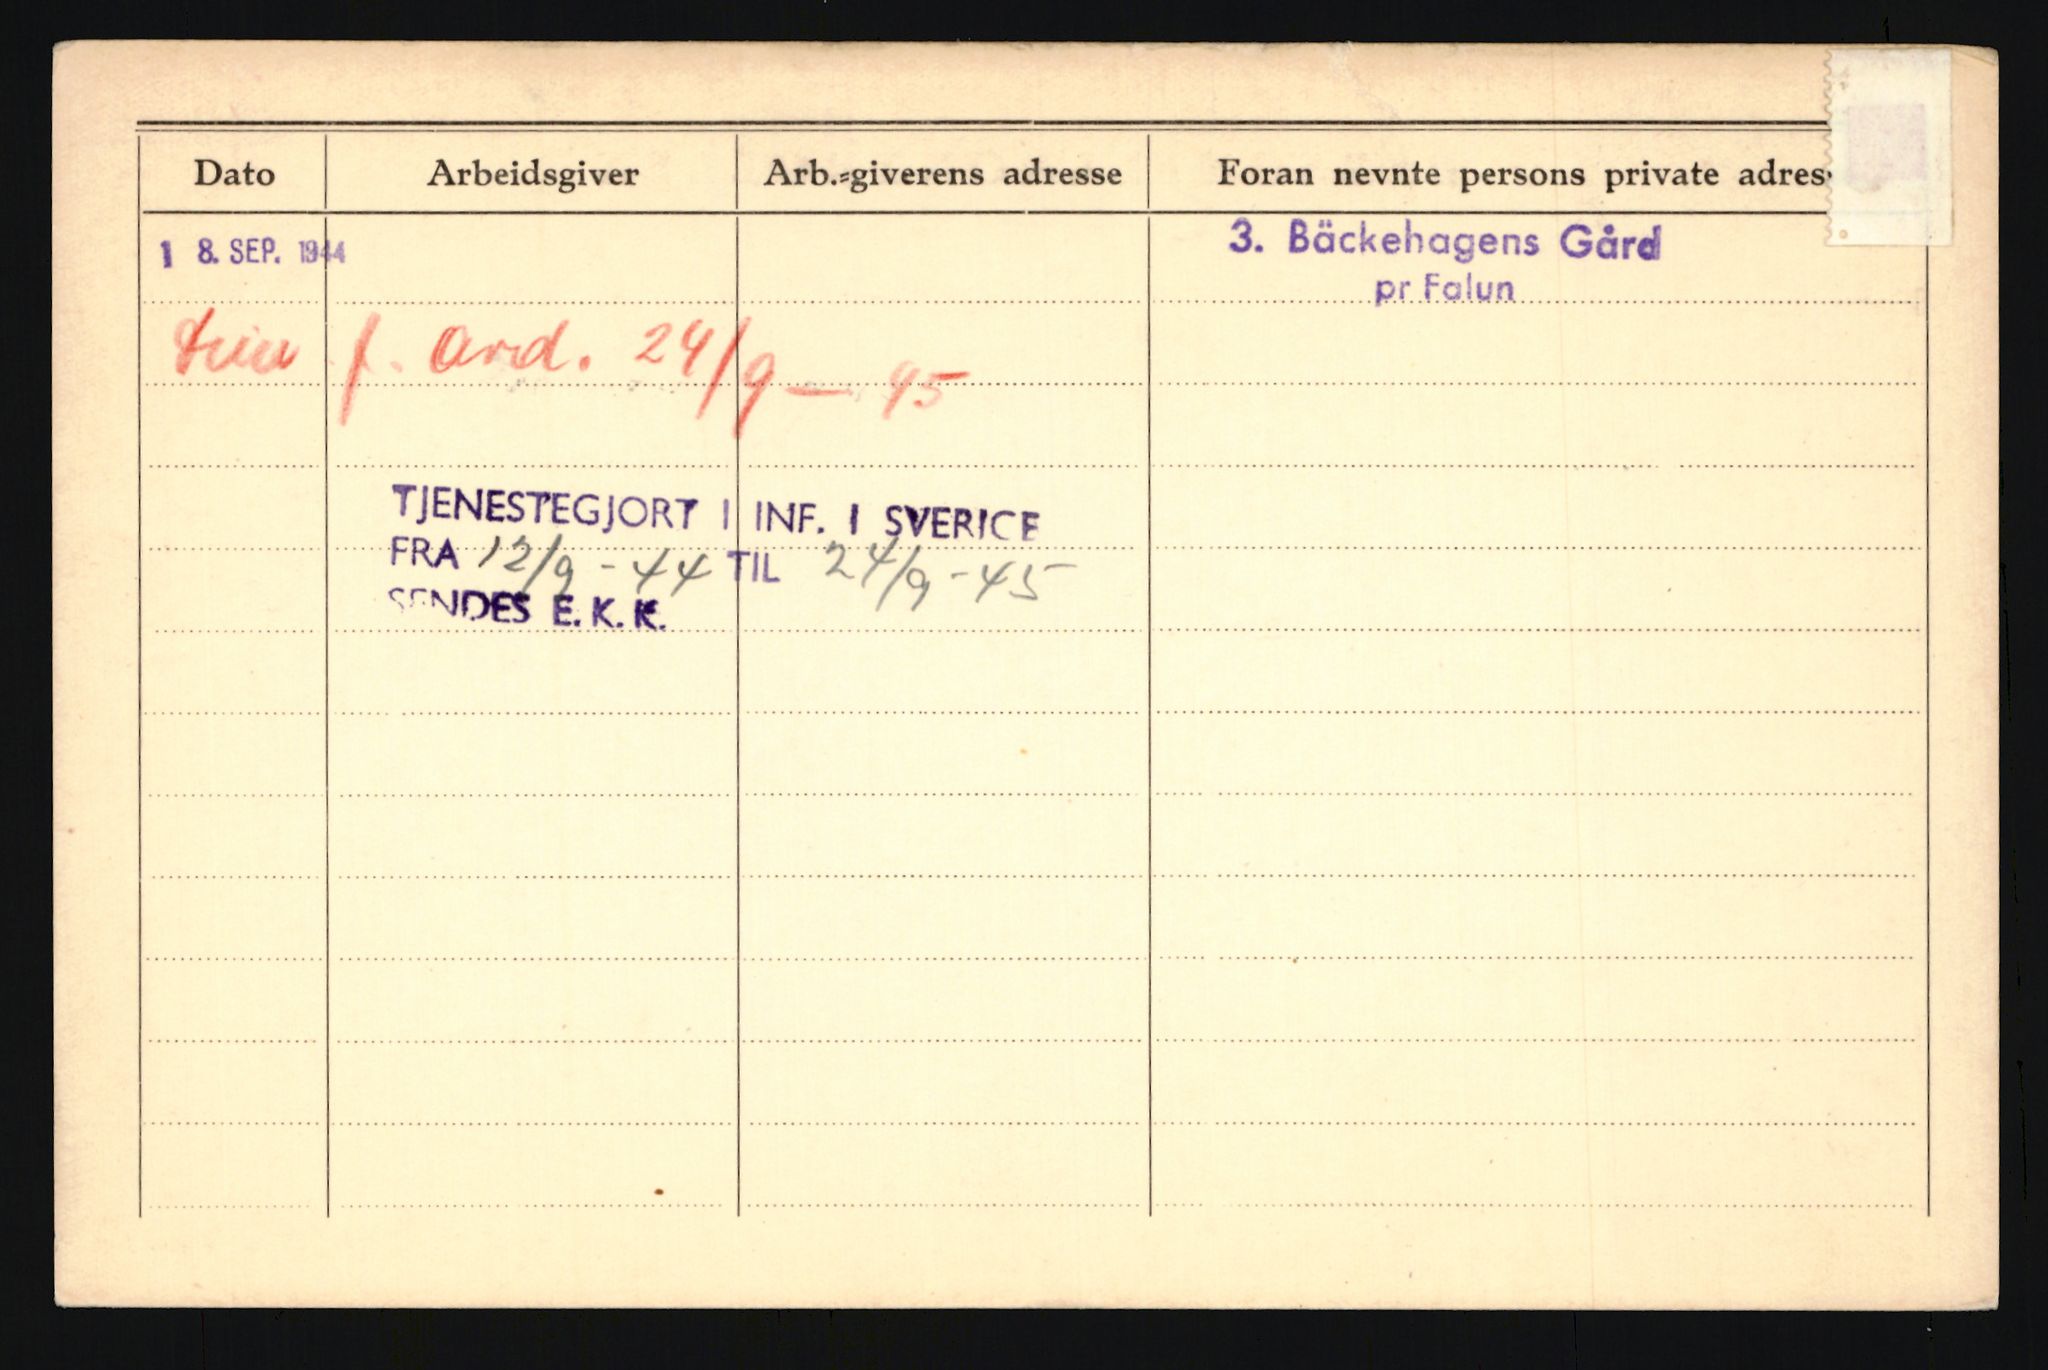 Dato Arbeidsgiver Arb.-giverens adresse Foran nevnte persons private adres
18. SEP. 1944 3. Bäckehagens Gård
pr Falun
Dim f. Avd. 24/9 - 45
TJENESTEGJORT I INF. I SVERICE
FRA 12/9 - 44 TIL 24/9 - 45
SENDES E.K.K.